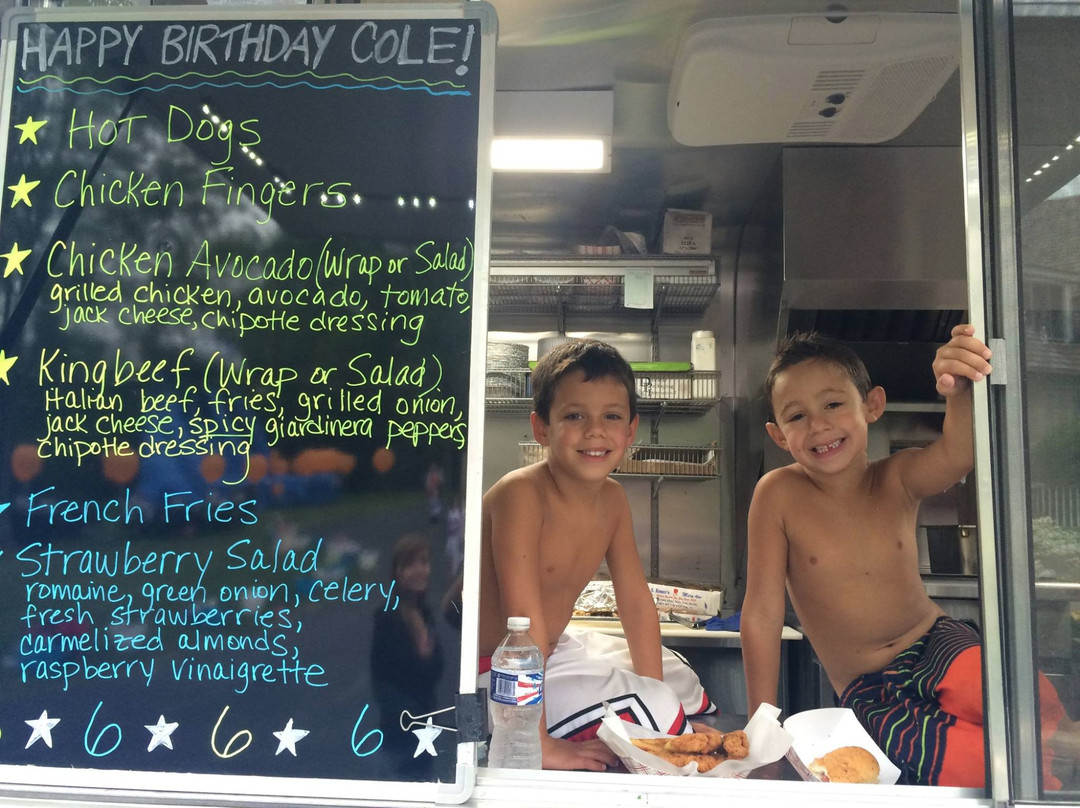 HAPPY BIRTHDAY COLE!
Hot Dogs
Chicken Fingers
Chicken Avocado (Wrap or Salad)
grilled chicken, avocado, tomato,
jack cheese, chipotle dressing
Kingbeef (Wrap or Salad)
Italian beef, fries, grilled onion,
jack cheese, spicy giardinera peppers,
chipotle dressing
French Fries
Strawberry Salad
romaine, green onion, celery,
fresh strawberries,
carmelized almonds,
raspberry vinaigrette
6 6 6